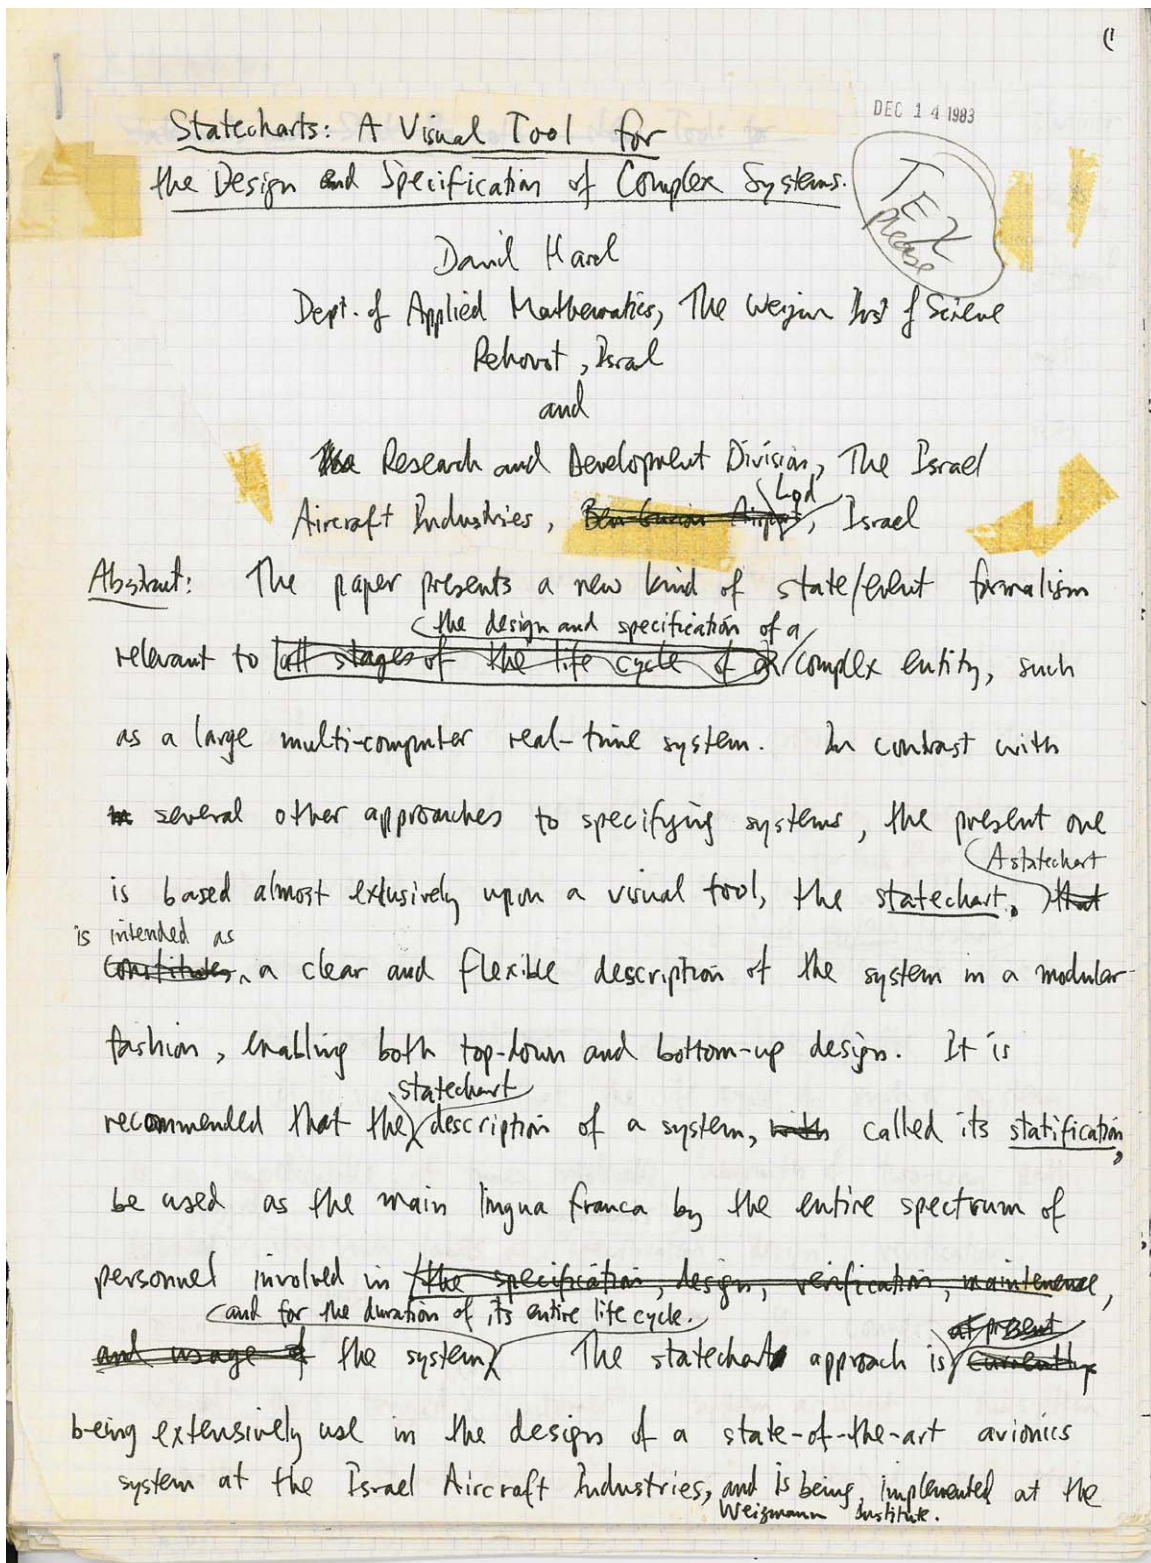 (1
DEC 14 1983
Statecharts: A Visual Tool for
the Design and Specification of Complex Systems.
TEX
please
David Harel
Dept. of Applied Mathematics, The Weizm Inst of Science
Rehovot, Israel
and
The Research and Development Division, The Israel
Lod
Aircraft Industries, Ben Gurion Airport, Israel
Abstract: The paper presents a new kind of state/event formalism
the design and specification of a
relevant to all stages of the life cycle of a complex entity, such
as a large multi-computer real-time system. In contrast with
several other approaches to specifying systems, the present one
A statechart
is based almost exlusively upon a visual tool, the statechart, that
is intended as
constitutes a clear and flexible description of the system in a modular
fashion, enabling both top-down and bottom-up design. It is
statechart
recommended that the description of a system, with called its statification,
be used as the main lingua franca by the entire spectrum of
personnel involved in the specification, design, verification, maintenence,
and for the duration of its entire life cycle.
at present
and usage of the system. The statechart approach is currently
being extensively use in the design of a state-of-the-art avionics
system at the Israel Aircraft Industries, and is being implemented at the
Weizmann Institute.